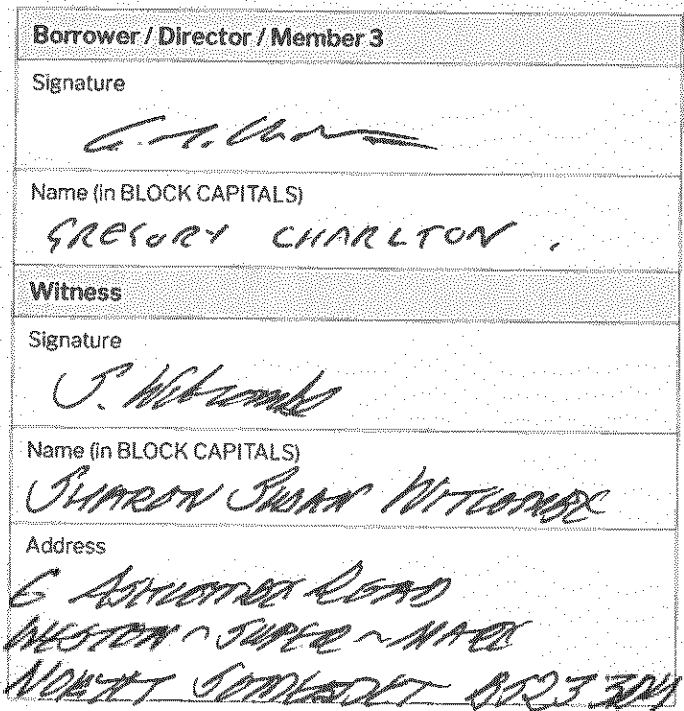 Borrower / Director / Member 3
Signature
Name (in BLOCK CAPITALS)
GREGORY CHARLTON .
Witness
Signature
S. Witcombe
Name (in BLOCK CAPITALS)
SHARON SUSAN WITCOMBE
Address
6 ASHCOMBE ROAD
WESTON ~ SUPER ~ MARE
NORTH SOMERSET BS23